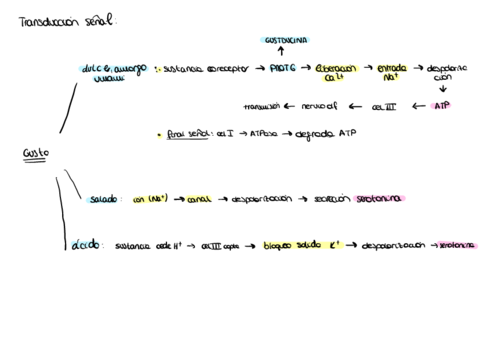 Transducción señal:
GUSTDUCINA
dulce, amargo : sustancia → receptor → PROT G → liberación Ca2+ → entrada Na+ → despolarización
umami
transmisión ← nervio af ← cel III ← ATP
• Final señal: cel I → ATPasa → degrada ATP
Gusto
salado: ion (Na+) → canal → despolarización → secreción serotonina
ácido: sustancia cede H+ → cel III capta → bloqueo salida K+ → despolarización → serotonina